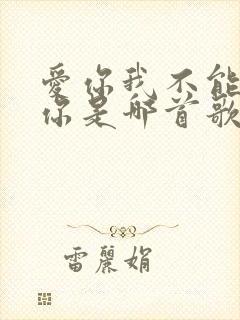 愛你我不能
你是那首歌
雷麗娟